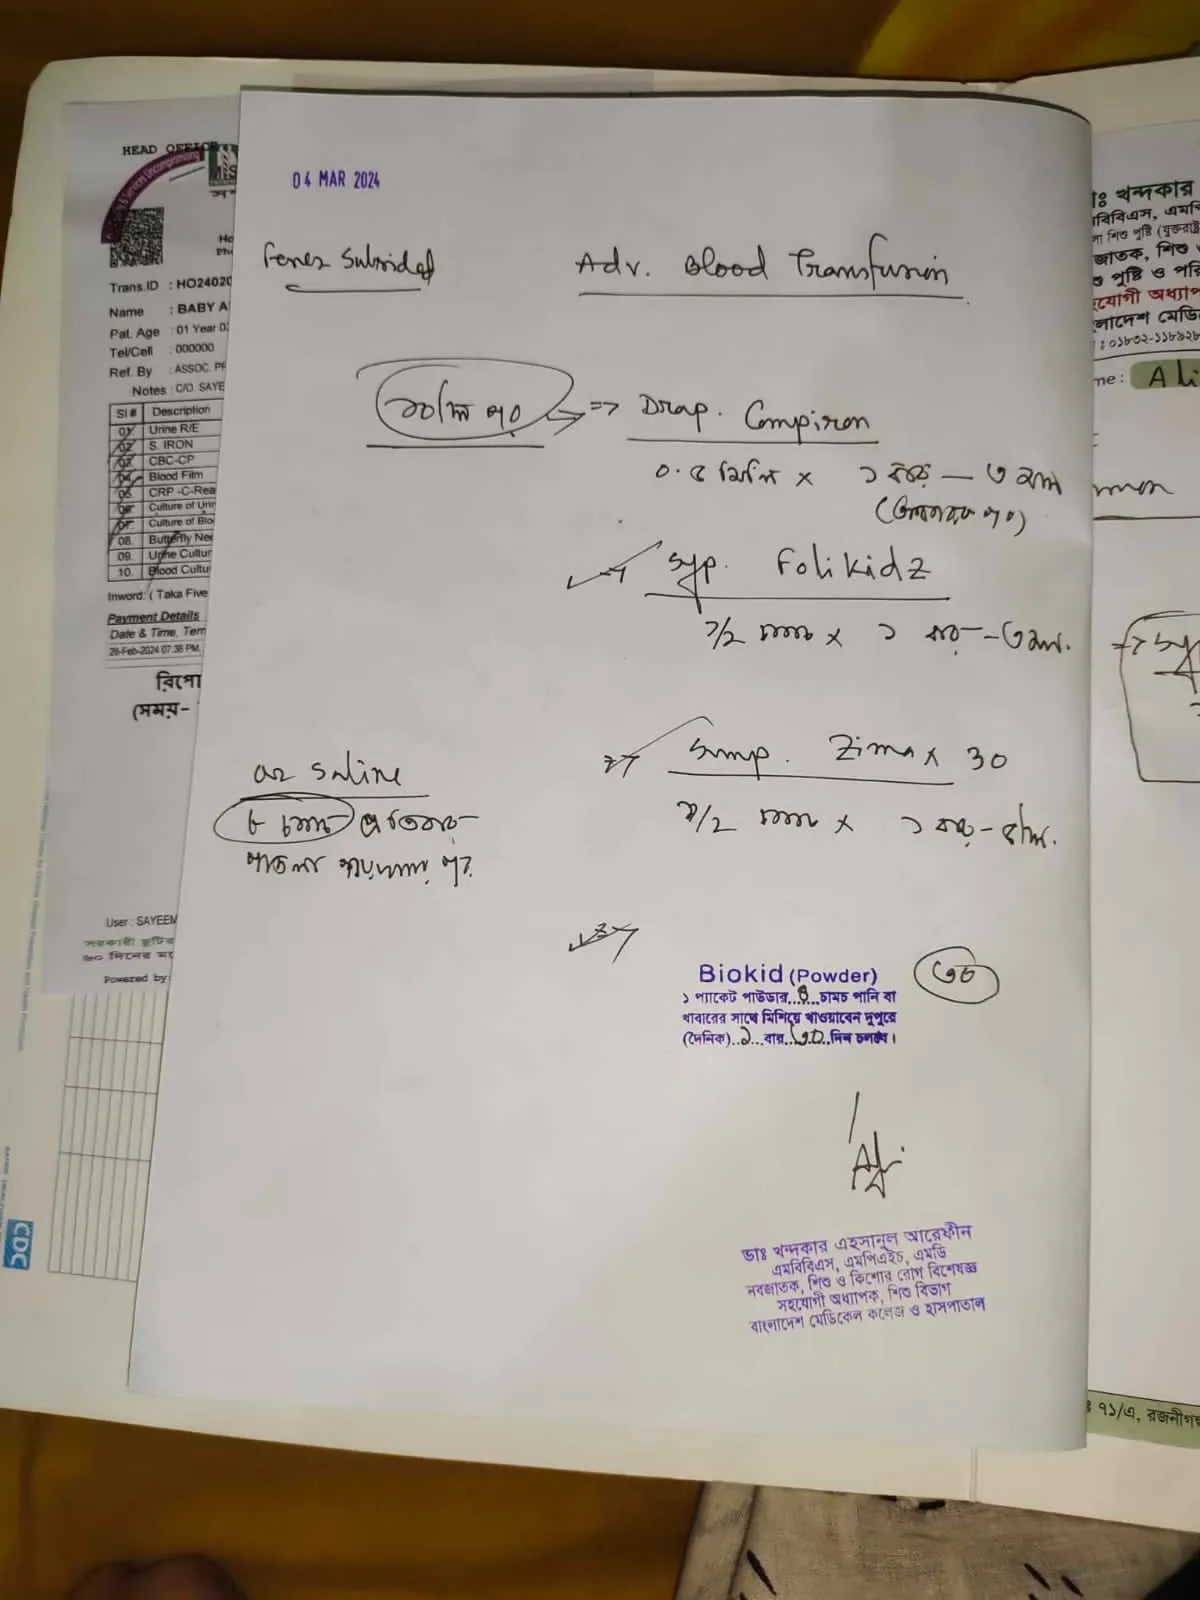 HEAD OFFICE
Trans.ID : HO24020
Name : BABY A
Pat. Age : 01 Year 0
Tel/Cell : 000000
Ref. By : ASSOC. PR
Notes : C/O. SAYE
Sl # Description
01 Urine R/E
02 S. IRON
03 CBC-CP
04 Blood Film
05 CRP -C-Rea
06 Culture of Urin
07 Culture of Blo
08. Butterfly Nee
09. Urine Cultur
10. Blood Cultu
Inword: ( Taka Five
Payment Details
Date & Time, Term
28-Feb-2024 07:38 PM,
রিপো
(সময়-
User : SAYEEM
সরকারী ছুটির
৬০ দিনের মধ্যে
Powered by:
CDC
04 MAR 2024
Fever Subsided
Adv. Blood Transfusion
১০ দিন পর => Drop. Compiron
০.৫ মিলি × ১ বার — ৩ মাস
Syp. Folikidz
১/২ চামচ × ১ বার — ৩ মাস.
Susp. Zimax 30
১/২ চামচ × ১ বার -
or saline
৮ চামচ প্রতিবার
পাতলা পায়খানার পর
Biokid (Powder)
১ প্যাকেট পাউডার...8...চামচ পানি বা
খাবারের সাথে মিশিয়ে খাওয়াবেন দুপুরে
(দৈনিক)..১...বার...৩০..দিন চলবে।
ডাঃ খন্দকার এহসানুল আরেফীন
এমবিবিএস, এমপিএইচ, এমডি
নবজাতক, শিশু ও কিশোর রোগ বিশেষজ্ঞ
সহযোগী অধ্যাপক, শিশু বিভাগ
বাংলাদেশ মেডিকেল কলেজ ও হাসপাতাল
াঃ খন্দকার
মবিবিএস, এমপি
শিশু পুষ্টি (যুক্তরাষ্ট্র
জাতক, শিশু
ও পুষ্টি ও পরি
হযোগী অধ্যাপ
ংলাদেশ মেডি
: ০১৮৩২-১১৮৯২৮
me : Ali
৭১/এ, রজনীগন্ধ